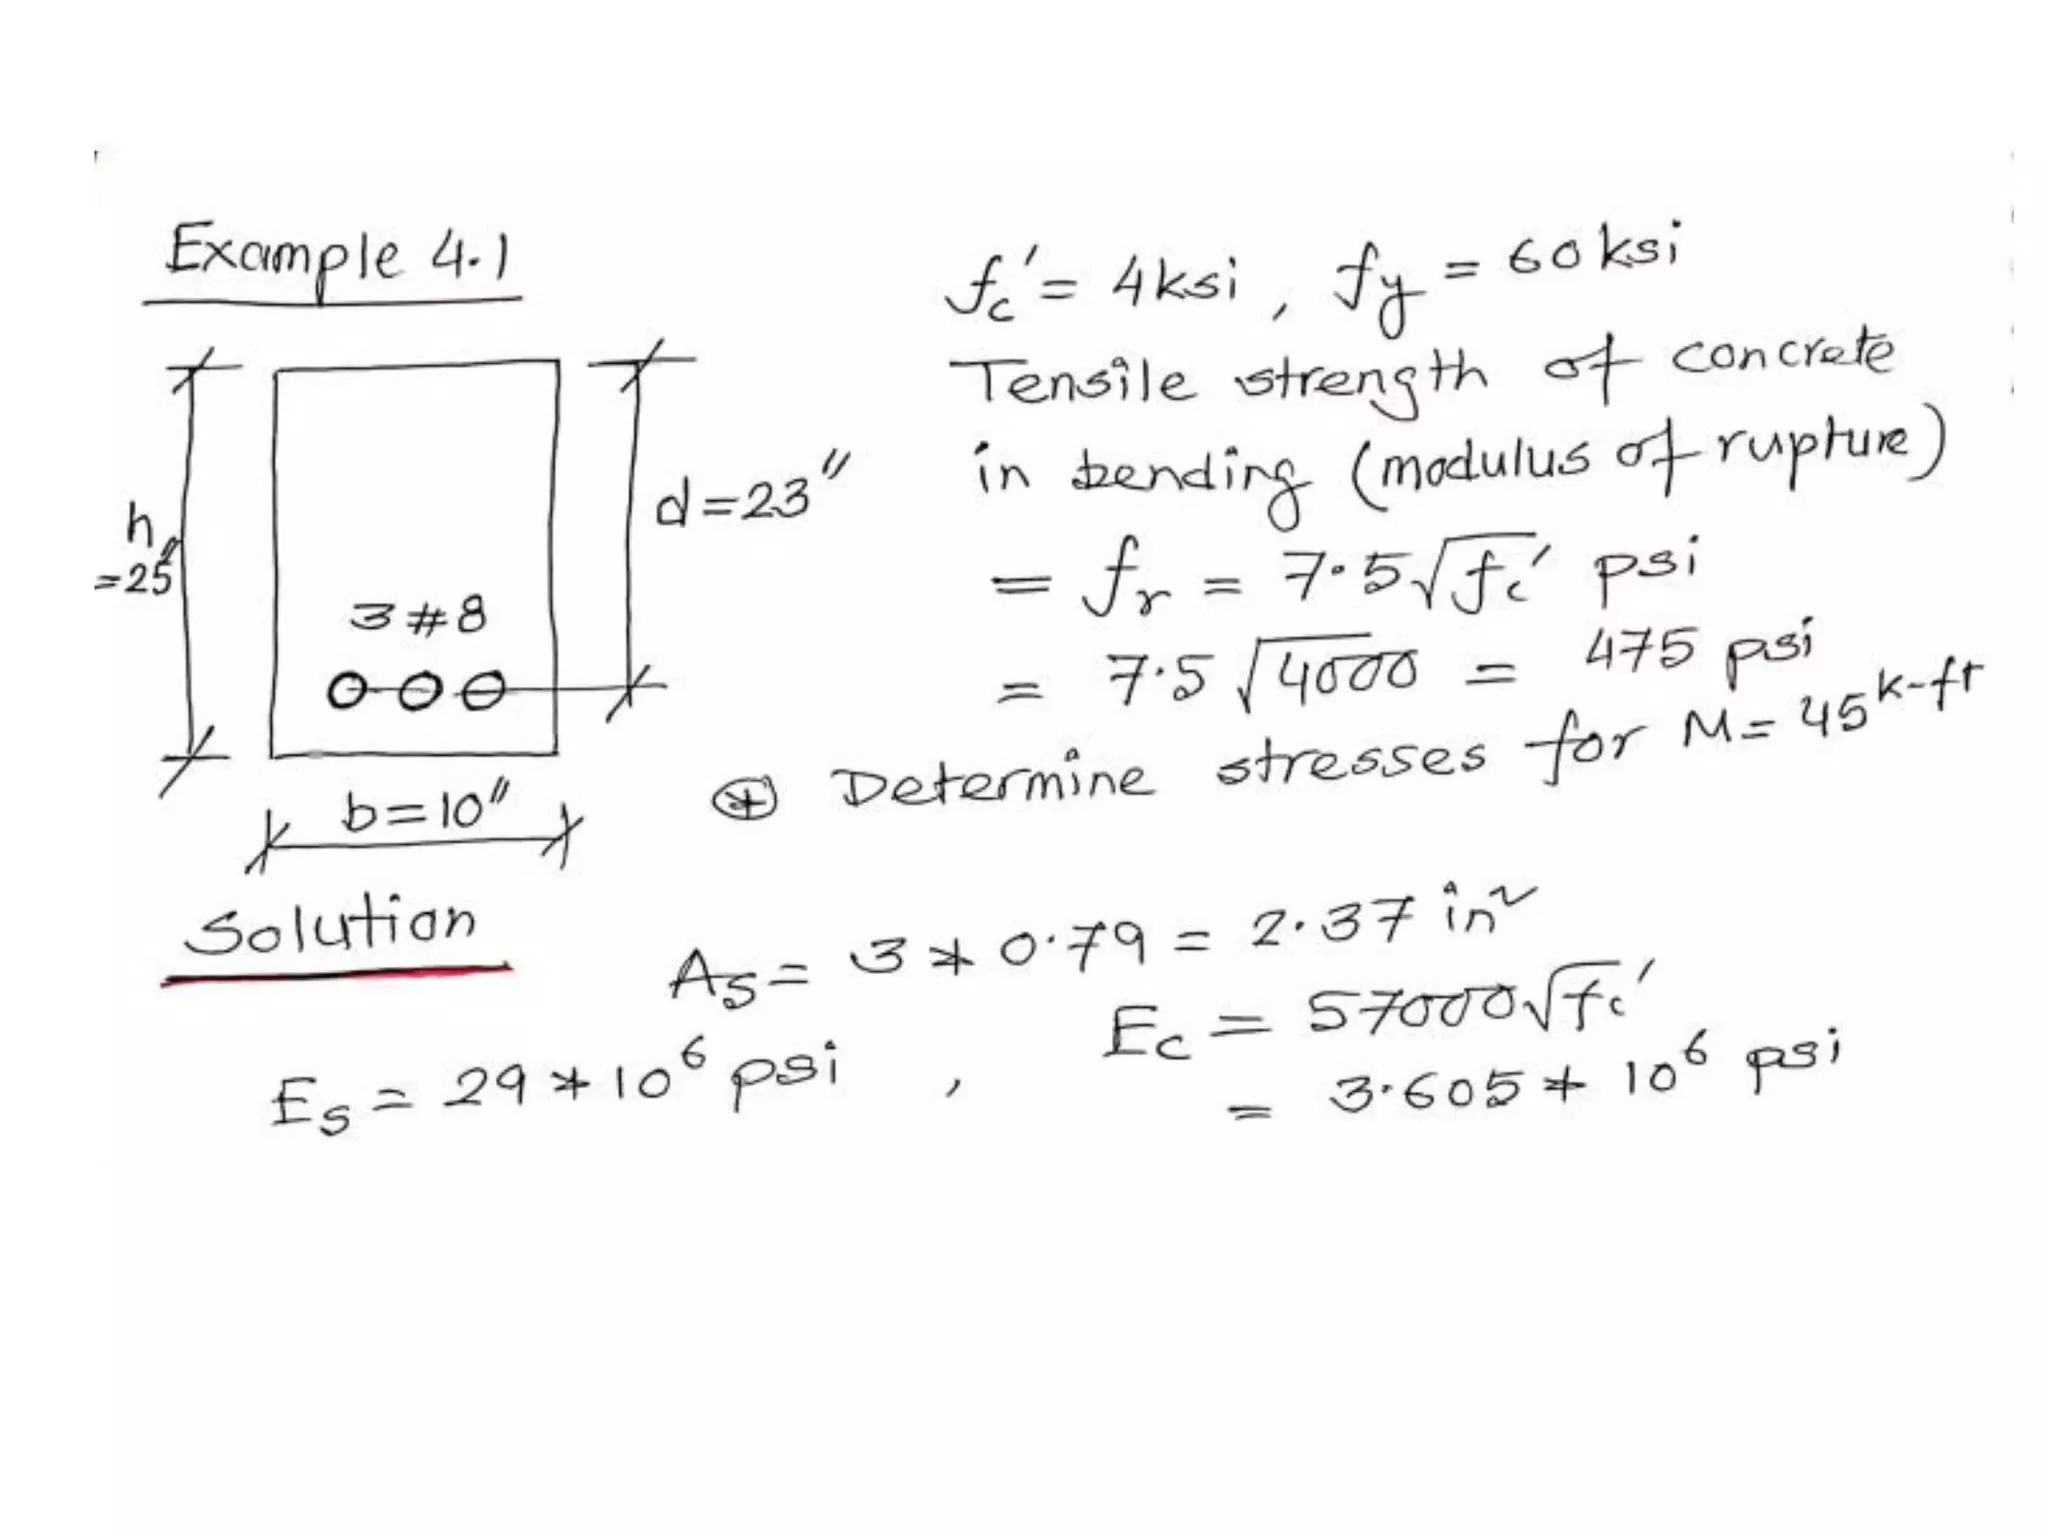 Example 4.1
fc' = 4ksi, fy = 60 ksi
Tensile strength of concrete
in bending (modulus of rupture)
= fr = 7.5√fc' psi
= 7.5 √4000 = 475 psi
h
=25"
d=23"
3#8
b=10"
⊛ Determine stresses for M= 45 k-ft
Solution
As = 3 * 0.79 = 2.37 in²
Es = 29 * 10⁶ psi , Ec = 57000√fc'
= 3.605 * 10⁶ psi